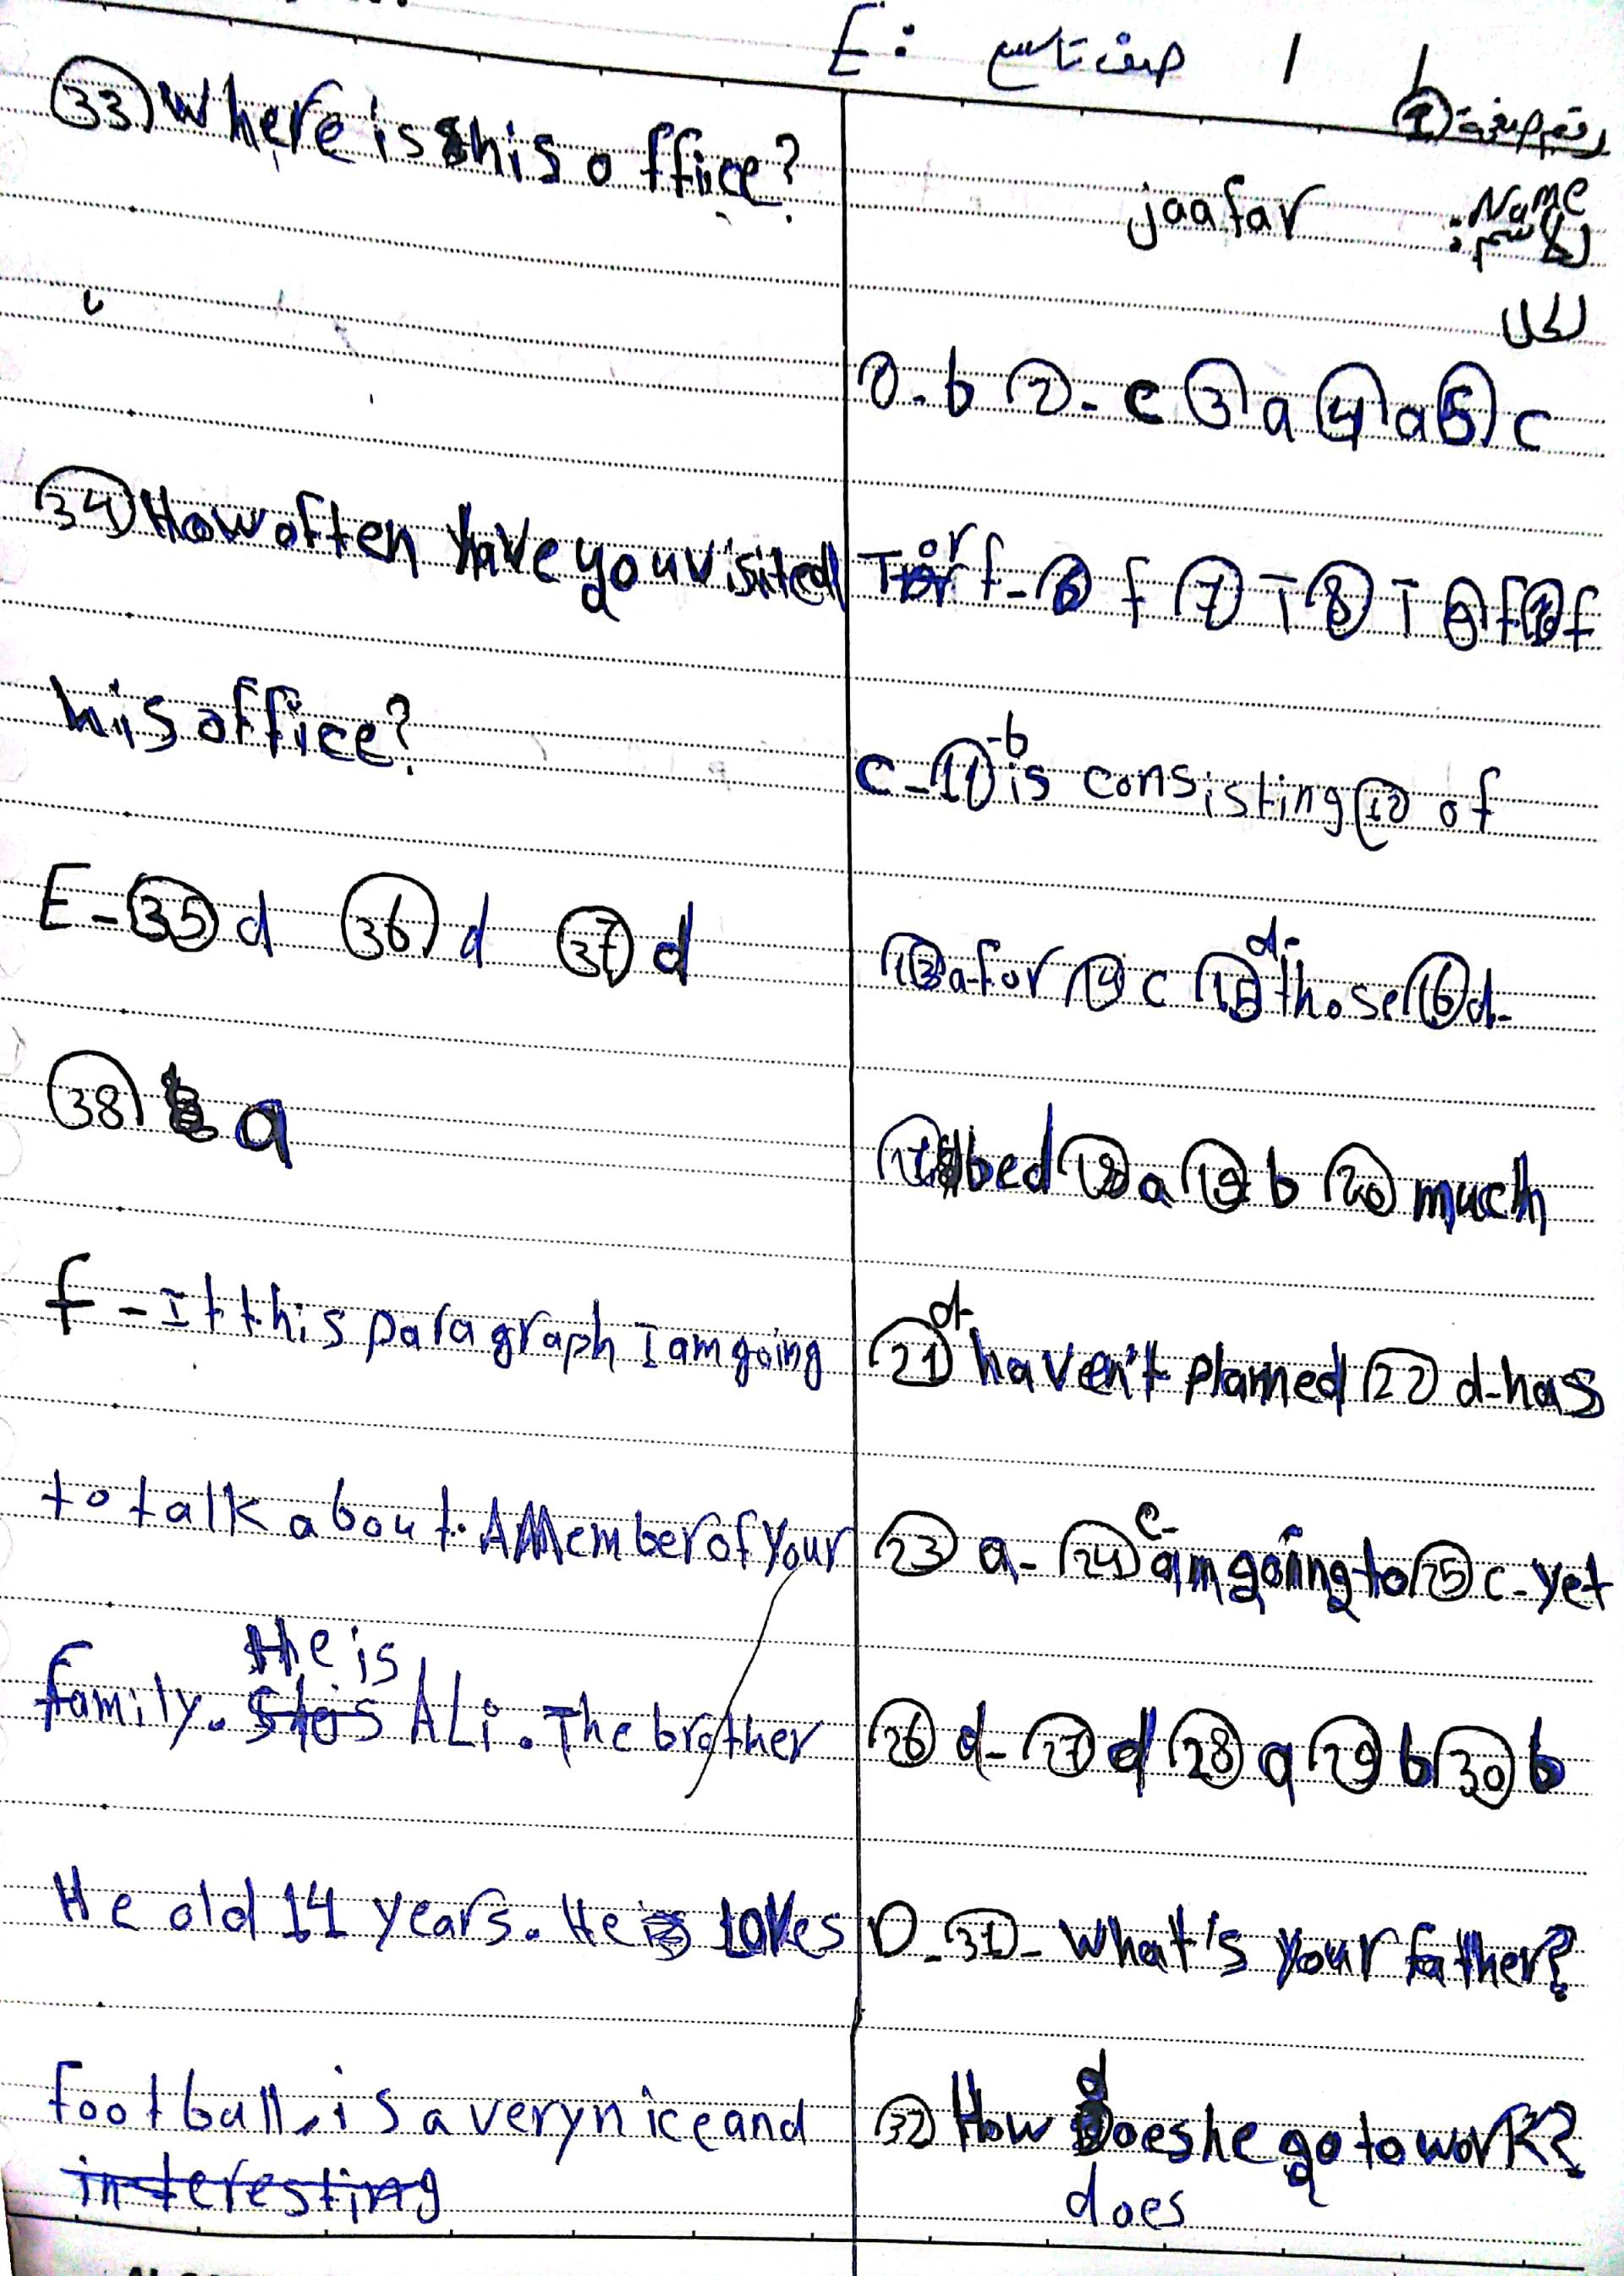 E: صف تاسع 1
رقم الصفحة ①
jaafar : Name
الاسم:
الحل
① - b ② - c ③ a ④ a ⑤ c
T or f - ⑥ f ⑦ T ⑧ T ⑨ f ⑩ f
c - ⑪ - b is consisting ⑫ of
⑬ a - for ⑭ c ⑮ d - those ⑯ d -
⑰ bed ⑱ a ⑲ b ⑳ much
㉑ d - haven't planned ㉒ d - has
㉓ a - ㉔ c - am going to ㉕ c - yet
㉖ d - ㉗ d ㉘ a ㉙ b ㉚ b
D - ㉛ - What's your father?
㉜ How does he go to work?
does
㉝ Where is his office?
㉞ How often have you visited
his office?
E - ㉟ d ㊱ d ㊲ d
㊳ a
f - It this paragraph I am going
to talk about. A Member of your
family. He is ALi. The brother
He old 14 years. He loves
football, is a very nice and
interesting